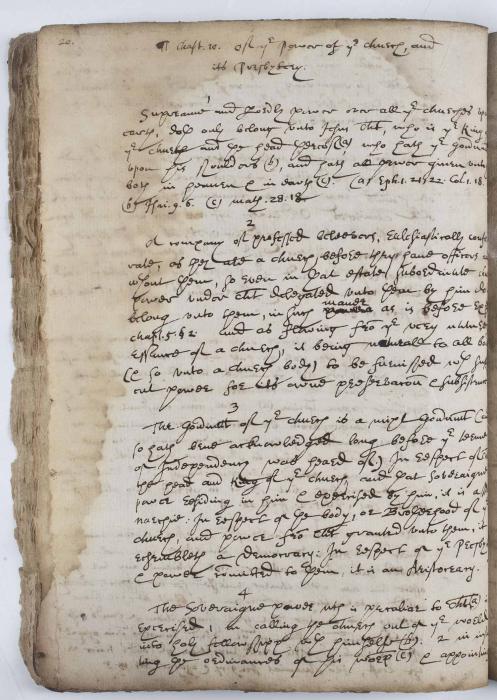 20.
¶ Chapt. 10. Of yͤ Power of yͤ church, and
its Presbytery.
1
Supreame and Lordly power over all yͤ churches upo
earth, doth only belong unto Jesus Cht, who is yͤ King
yͤ church and the head thereof(a) who hath yͤ goverm
upon his shoulders (b), and hath all power given unto
both in heaven & in earth (c). (a) Eph. 1. 21, 22. Col. 1. 18.
(b) Isai. 9. 6. (c) math. 28. 18.
2
A company of professed beleevers, Ecclesiastically confe
rate, as they are a church, before they have officers
wthout them, so even in that estate, subordinate
power under Cht delegated unto them by him do
belong unto them, in such maner as is before Exp
chapt. 5. S 2. and as flowing fro yͤ very nature
Essence of a church, it being naturall to all bod
(& so unto a church body) to be furnished wth suffi
ent power for its owne preservation & subsistance
3
The Goverment of yͤ church is a mixt Goverment (
so hath bene acknowledged long before yͤ terme
of Independency was heard of) In respect of
the head and King of yͤ church, and that Soveraigne
power residing in him & exercised by him, it is a
narchie: In respect of the body, or Brotherhood of y
church, and power fro Cht granted unto them, it
resembleth a Democracy: In respect of yͤ Presby
& power comitted to them, it is an Aristocracy.
4
The Soveraigne power wch is peculiar to Cht (a) is
Exercised, 1 in calling the church out of yͤ world
into holy fellowshipp wth himselfe (b) 2 in in
ting the ordinances of his worp (c) & appointin